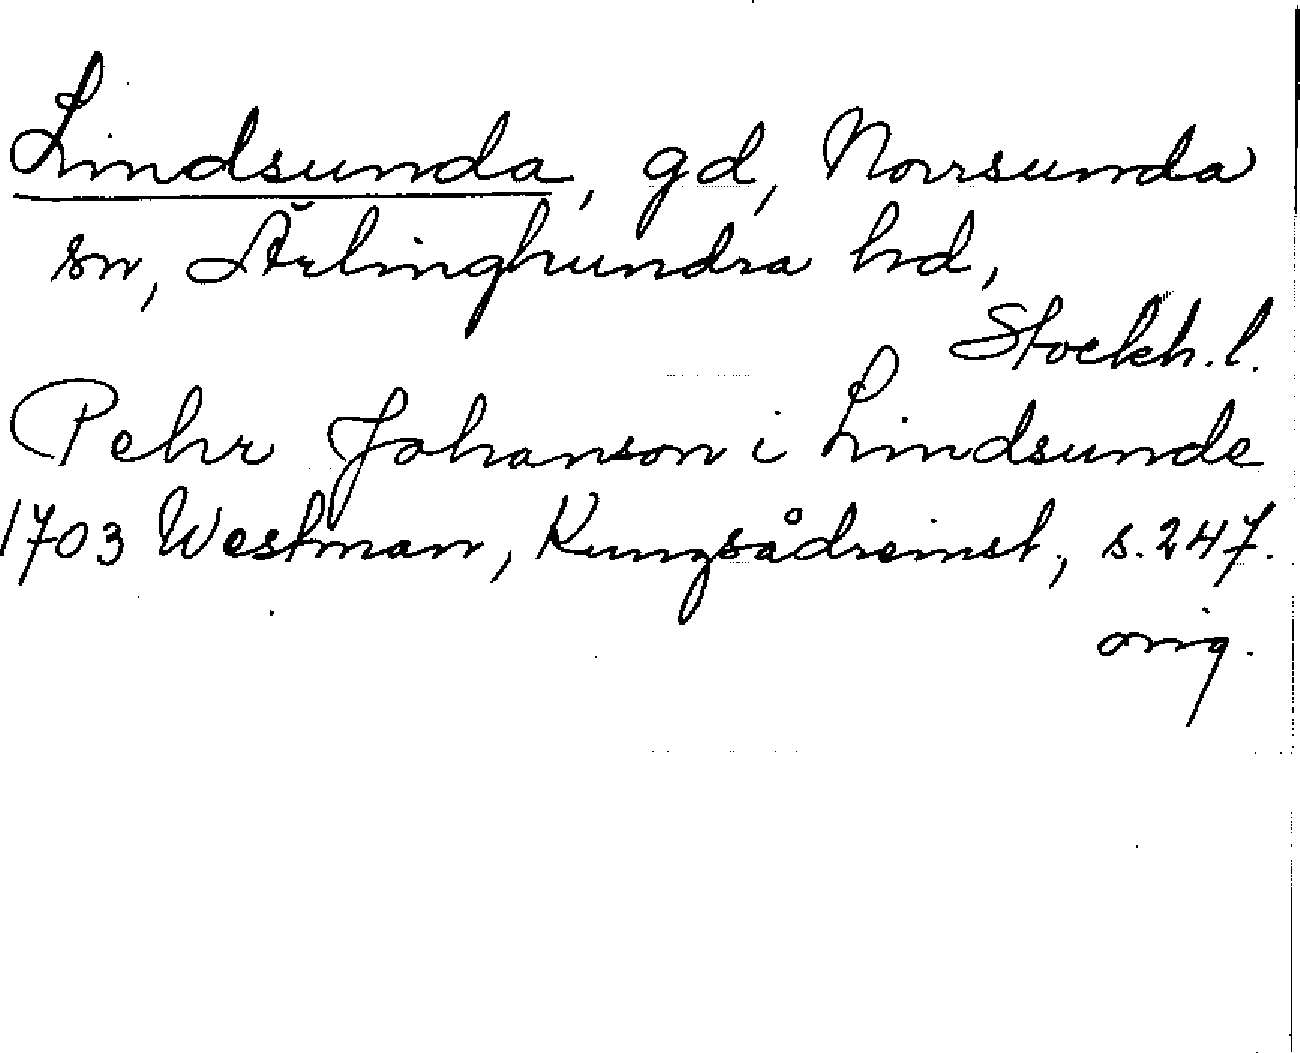 Lindsunda, gd, Norrsunda
sn, Ärlinghundra hd,
Stockh. l.
Pehr Johanson i Lindsunde
1703 Westman, Kungsådreinst., s. 247.
orig.